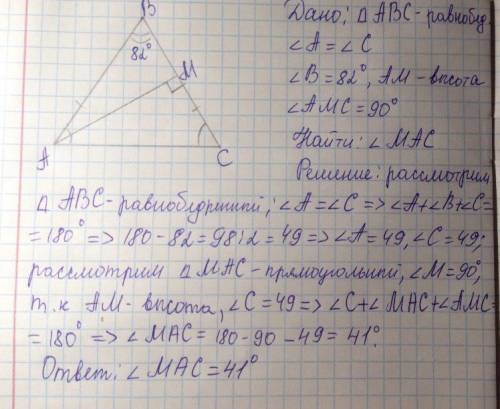 B
82°
M
A
C
Дано: △ABC-равнобед
∠A=∠C
∠B=82°, AM-высота
∠AMC=90°
Найти: ∠MAC
Решение: рассмотрим
△ ABC-равнобедренный; ∠A=∠C => ∠A+∠B+∠C=
=180° => 180-82=98:2=49 => ∠A=49, ∠C=49;
рассмотрим △MAC-прямоугольный, ∠M=90°,
т.к AM-высота, ∠C=49 => ∠C+∠MAC+∠AMC=
=180° => ∠MAC=180-90-49=41°.
Ответ: ∠MAC=41°